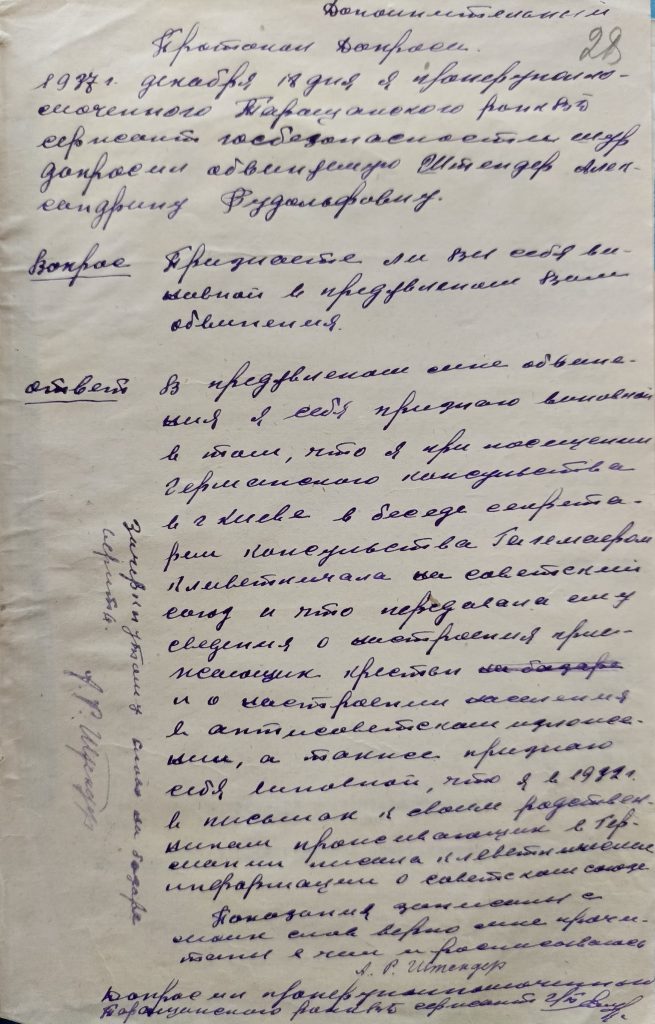 Дополнительный
28
Протокол Допроса.
1937 г. декабря 18 дня я
смоченного Таращанского
сержант госбезопасности
допросил обвиняемую Штендер Алек-
сандрину Рудольфовну.
Вопрос Признаете ли вы себя ви-
новной в предувленом Вам
обвинения.
ответ В предувленом мне обвине-
ния я себя признаю виновной
в том, что я при посещении
Германского консульства
в г Киеве в беседе секрета-
рем консульства
клеветничала на советский
союз и что передавала ему
сведения о настроения прие-
жающих крестьн на базаре
и о настроении населения
в антисоветском изложе-
нии, а также признаю
себя виновной, что я в 1932 г.
в письмах к своим родствен-
никам проживающих в Гер-
мании писала клеветнические
информации о советском союзе
Показания записаны с
моих слов верно мне прочи-
таны в чем и росписываюсь
А. Р. Штендер
Допросил
Таращанского сержант г/б
Зачеркнутому слово на базаре
верить.
А. Р. Штендер